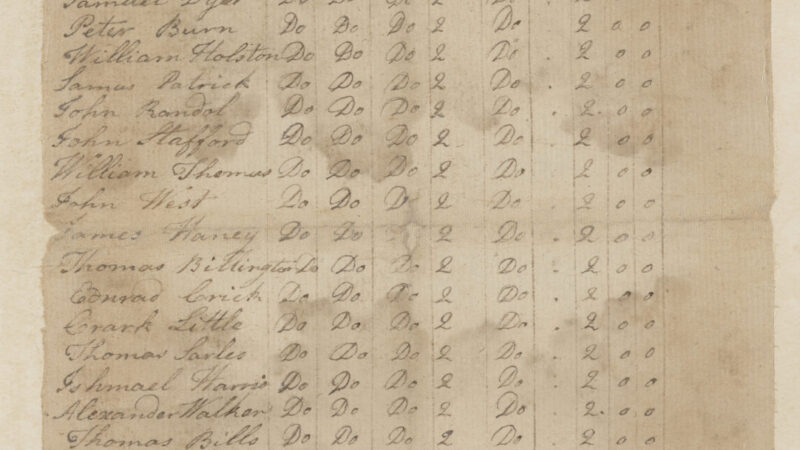 Samuel Dyer Do Do Do 2 Do . 2 0 0
Peter Burn Do Do Do 2 Do . 2 0 0
William Holston Do Do Do 2 Do . 2 0 0
Samus Patrick Do Do Do 2 Do . 2 0 0
John Randol Do Do Do 2 Do . 2 0 0
John Stafford Do Do Do 2 Do . 2 0 0
William Thomas Do Do Do 2 Do . 2 0 0
John West Do Do Do 2 Do . 2 0 0
James Haney Do Do 2 Do . 2 0 0
Thomas Billington Do Do Do 2 Do . 2 0 0
Conrad Crick Do Do Do 2 Do . 2 0 0
Crark Little Do Do Do 2 Do . 2 0 0
Thomas Sarles Do Do Do 2 Do . 2 0 0
Ishmael Harris Do Do Do 2 Do . 2 0 0
Alexander Walker Do Do Do 2 Do . 2. 0 0
Thomas Bills Do Do Do 2 Do . 2 0 0